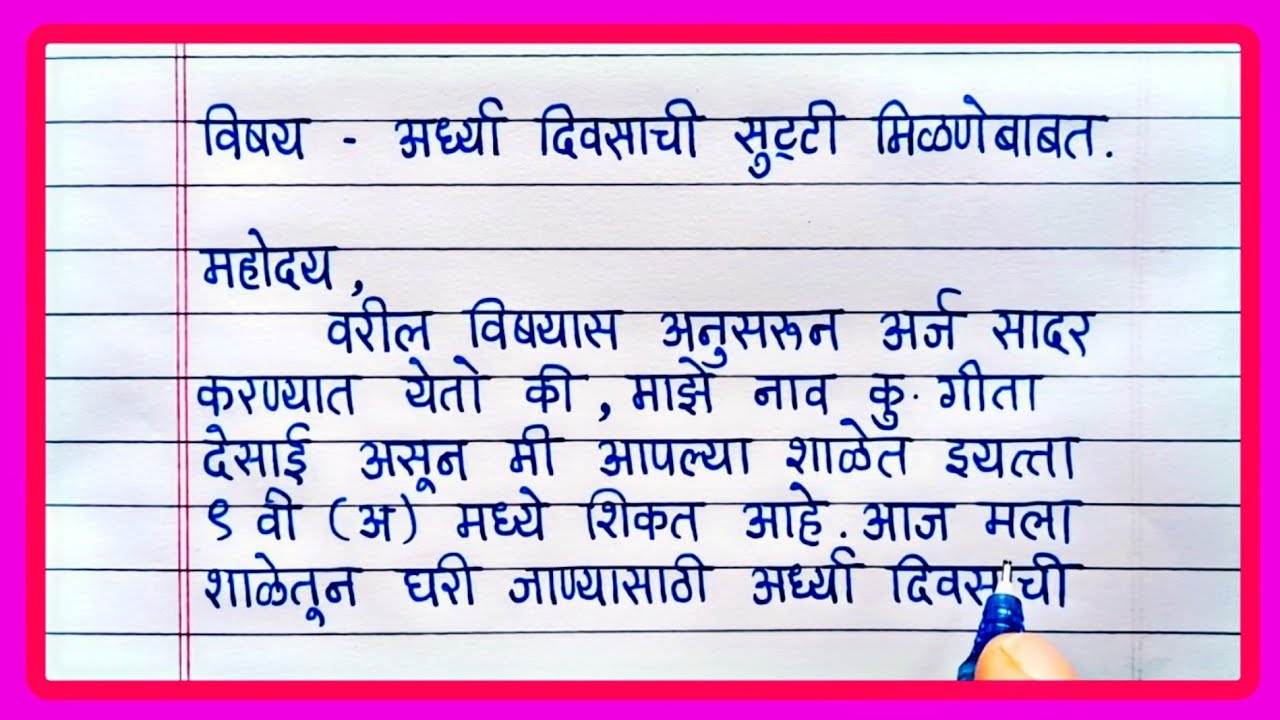 विषय - अर्ध्या दिवसाची सुट्टी मिळणेबाबत.
महोदय,
वरील विषयास अनुसरून अर्ज सादर
करण्यात येतो की, माझे नाव कु. गीता
देसाई असून मी आपल्या शाळेत इयत्ता
९ वी (अ) मध्ये शिकत आहे. आज मला
शाळेतून घरी जाण्यासाठी अर्ध्या दिवसाची